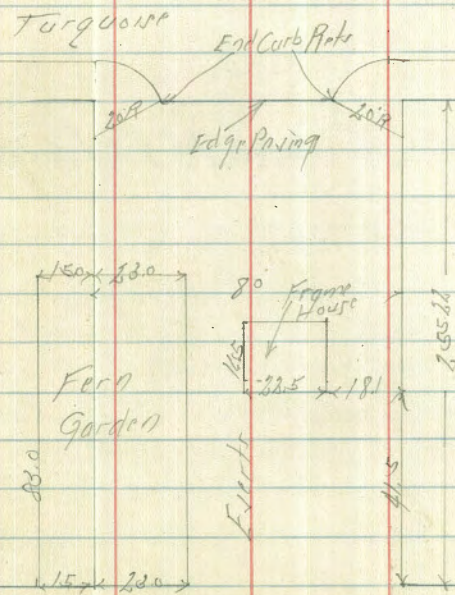 Turquoise
End Curb Retn
20'R
20'R
Edge Paving
15.0
23.0
80
Frame
House
16.5
22.5
18.1
Fern
Garden
83.0
Everts
15
23.0